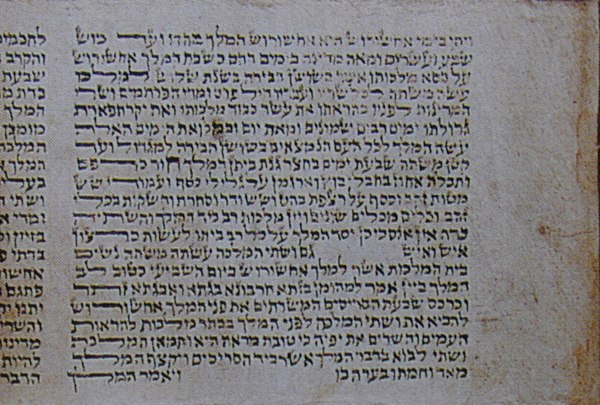 ויהי בימי אחשורוש הוא אחשורוש המלך מהדו ועד כוש
שבע ועשרים ומאה מדינה בימים ההם כשבת המלך אחשורוש
על כסא מלכותו אשר בשושן הבירה בשנת שלוש למלכו
עשה משתה לכל שריו ועבדיו חיל פרס ומדי הפרתמים ושרי
המדינות לפניו בהראתו את עשר כבוד מלכותו ואת יקר תפארת
גדולתו ימים רבים שמונים ומאת יום ובמלואת הימים האלה
עשה המלך לכל העם הנמצאים בשושן הבירה למגדול ועד
קטן משתה שבעת ימים בחצר גנת ביתן המלך חור כרפס
ותכלת אחוז בחבלי בוץ וארגמן על גלילי כסף ועמודי שש
מטות זהב וכסף על רצפת בהט ושש ודר וסחרת והשקות בכלי
זהב וכלים מכלים שונים ויין מלכות רב כיד המלך והשתיה
כדת אין אנס כי כן יסד המלך על כל רב ביתו לעשות כרצון
איש ואיש גם ושתי המלכה עשתה משתה נשים
בית המלכות אשר למלך אחשורוש ביום השביעי כטוב לב
המלך ביין אמר למהומן בזתא חרבונא בגתא ואבגתא זתר
וכרכס שבעת הסריסים המשרתים את פני המלך אחשורוש
להביא את ושתי המלכה לפני המלך בכתר מלכות להראות
העמים והשרים את יפיה כי טובת מראה היא ותמאן המלכה
ושתי לבוא בדבר המלך אשר ביד הסריסים ויקצף המלך
מאד וחמתו בערה בו ויאמר המלך
לחכמים
והקרב
שבעת
כדת
המלך
מומכן
המלכה
המלך
ושתי
ודברי
בזיון
בדתי
אחשורוש
פתגם
יתן
והשרים
להיות
הדבר